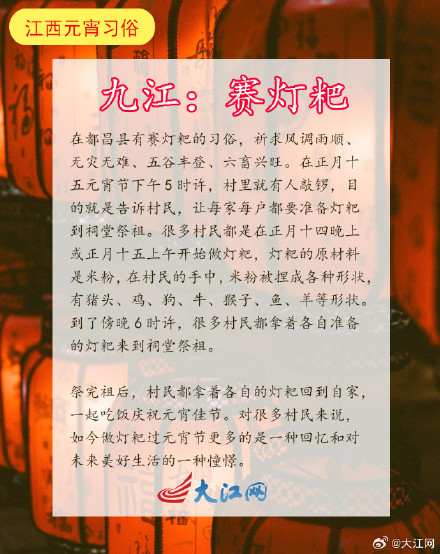 江西元宵习俗
九江：赛灯粑
在都昌县有赛灯粑的习俗，祈求风调雨顺、
无灾无难、五谷丰登、六畜兴旺。在正月十
五元宵节下午5时许，村里就有人敲锣，目
的就是告诉村民，让每家每户都要准备灯粑
到祠堂祭祖。很多村民都是在正月十四晚上
或正月十五上午开始做灯粑，灯粑的原材料
是米粉，在村民的手中，米粉被捏成各种形状，
有猪头、鸡、狗、牛、猴子、鱼、羊等形状。
到了傍晚6时许，很多村民都拿着各自准备
的灯粑来到祠堂祭祖。
祭完祖后，村民都拿着各自的灯粑回到自家，
一起吃饭庆祝元宵佳节。对很多村民来说，
如今做灯粑过元宵节更多的是一种回忆和对
未来美好生活的一种憧憬。
大江网
@大江网